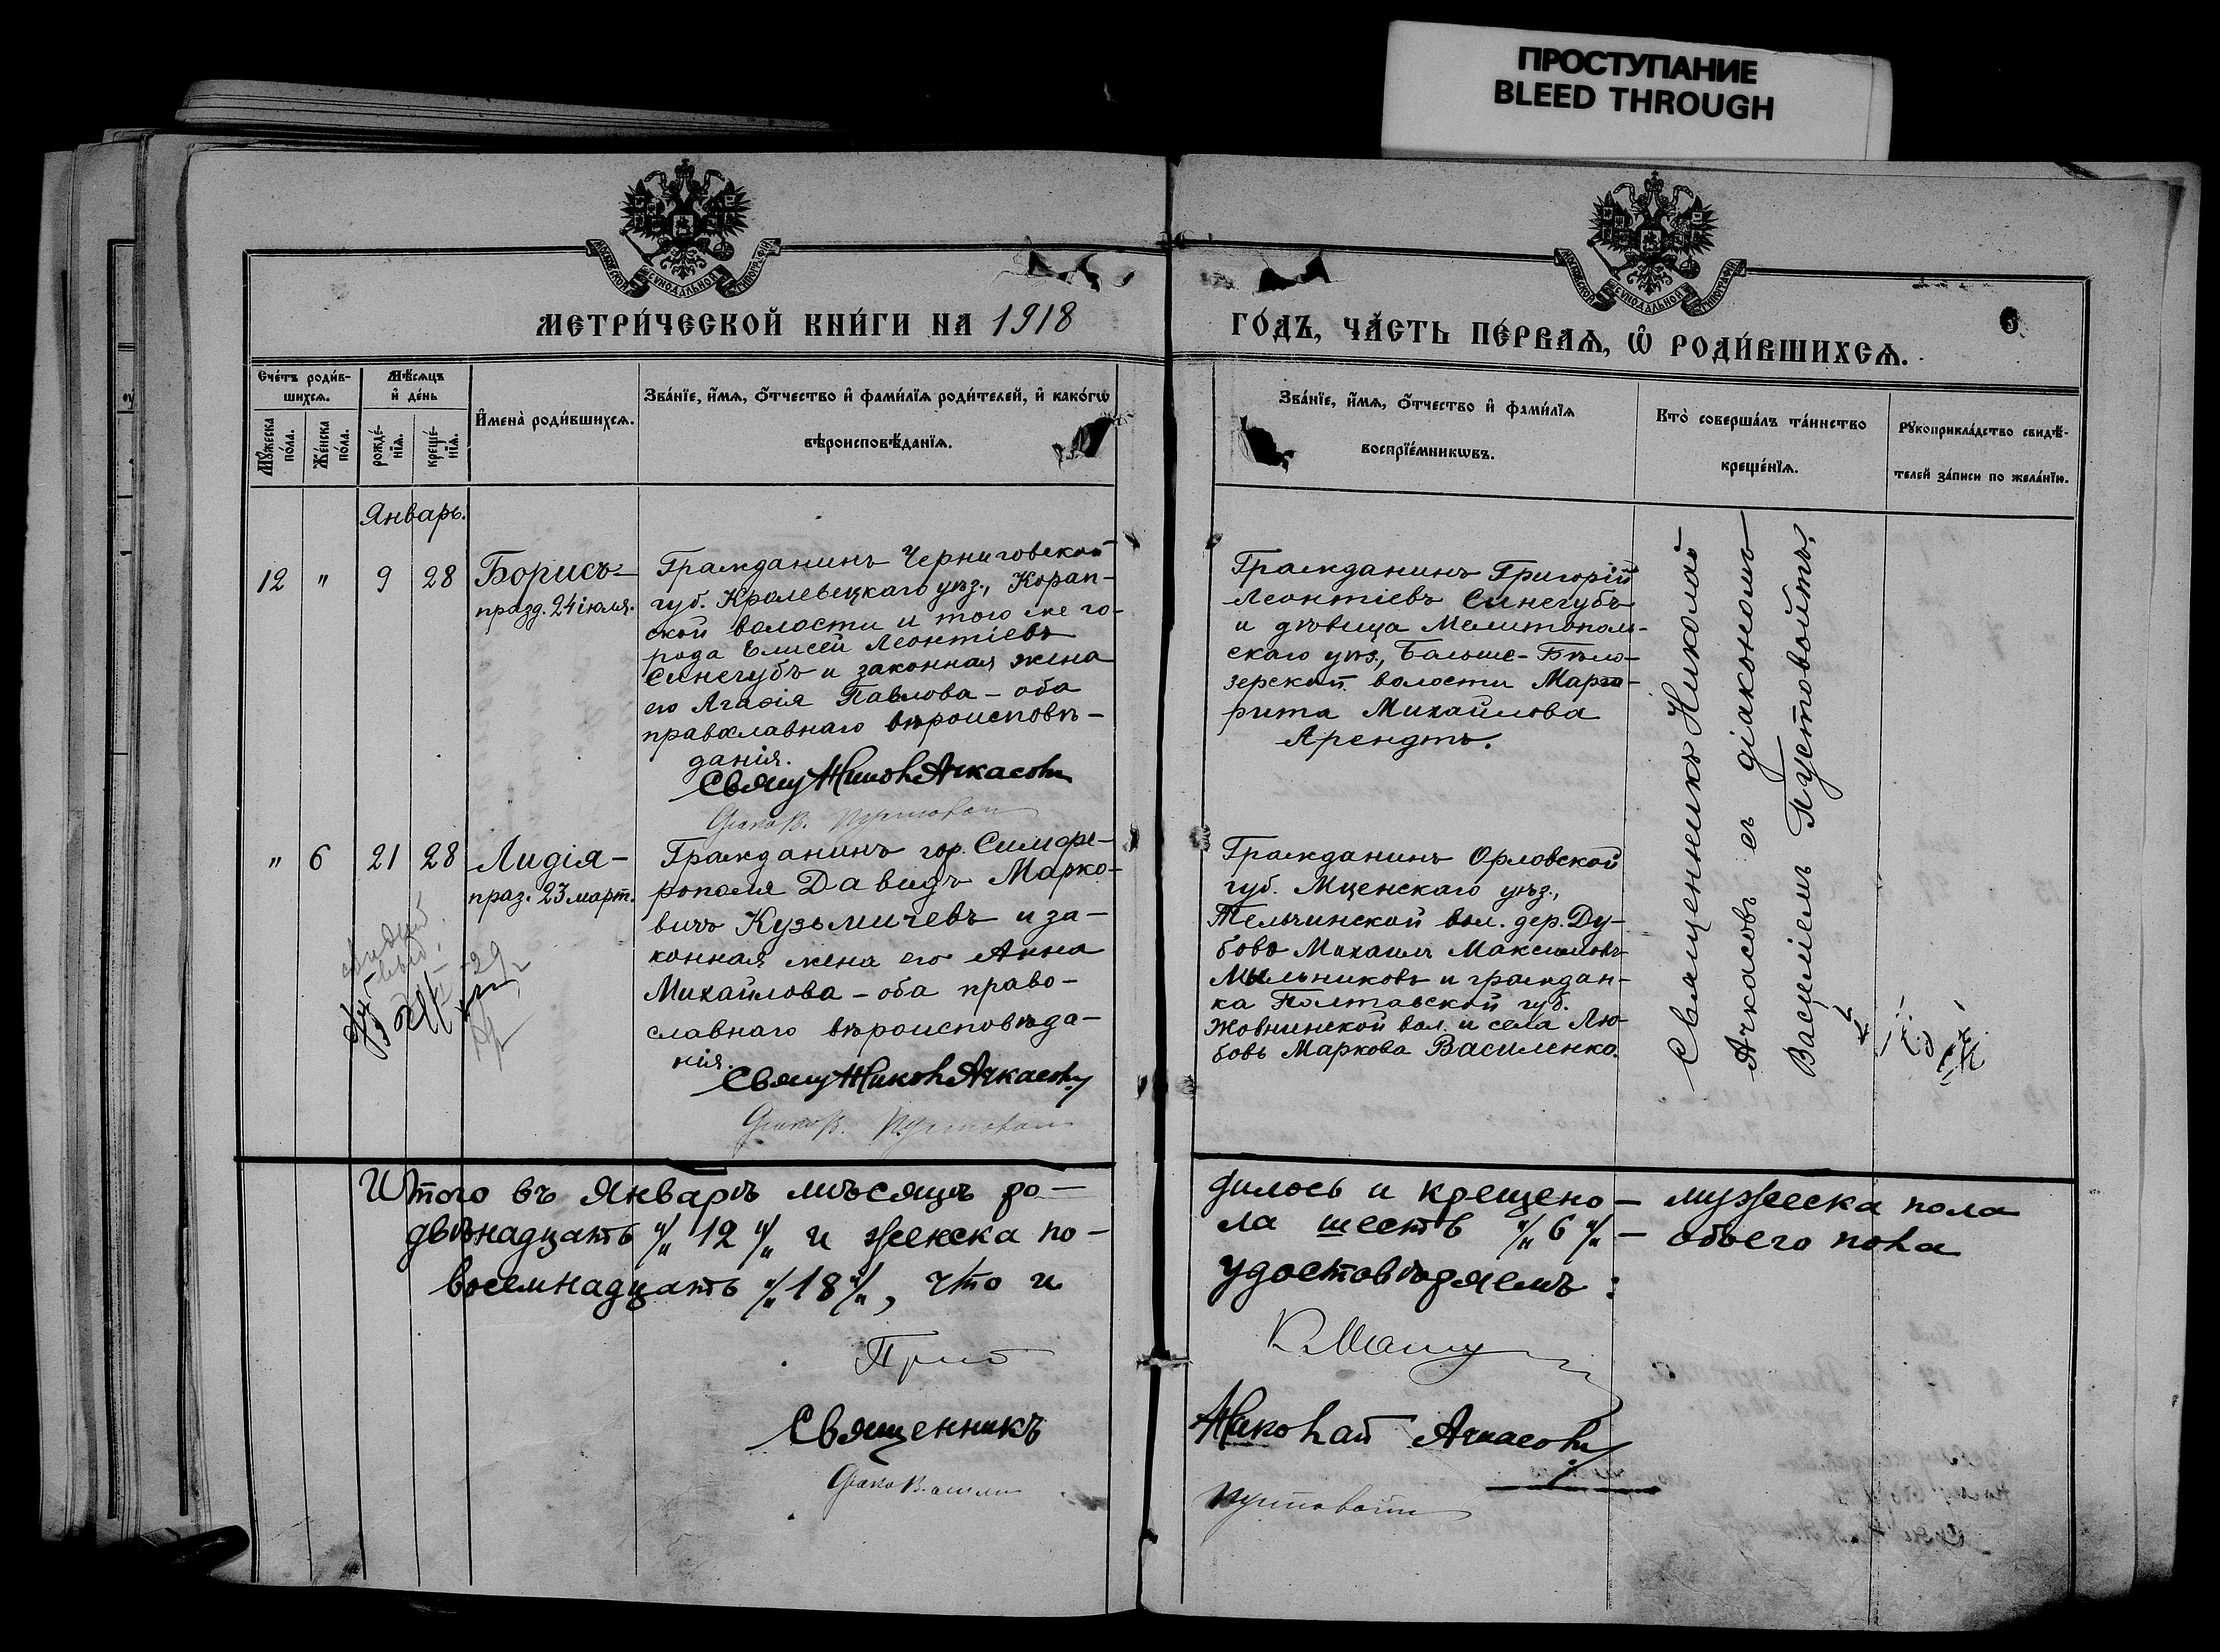 ПРОСТУПАНИЕ
BLEED THROUGH
МОСКОВСКОЙ СѴНОДАЛЬНОЙ ТИПОГРАФІИ
МОСКОВСКОЙ СѴНОДАЛЬНОЙ ТИПОГРАФІИ
МЕТРИ́ЧЕСКОЙ КНИ́ГИ НА 1918
ГО́ДЪ, ЧА́СТЬ ПЕ́РВАѦ, Ѡ҆ РОДИ́ВШИХСѦ.
Сче́тъ роди́в-
шихсѧ.
Мꙋ́жеска
по́ла.
Же́нска
по́ла.
Мѣ́сѧцъ
и҆ де́нь
рожде́-
нїѧ.
креще́-
нїѧ.
И҆мена̀ роди́вшихсѧ.
Зва́нїе, и҆́мѧ, ѻ҆́тчество и҆ фами́лїѧ роди́телей, и҆ како́гѡ
вѣроисповѣ́данїѧ.
Зва́нїе, и҆́мѧ, ѻ҆́тчество и҆ фами́лїѧ
воспрїе́мникѡвъ.
Кто̀ соверша́лъ та́инство
креще́нїѧ.
Рꙋкоприкла́дство свидѣ́-
телей за́писи по жела́нїю.
Январь.
12 " 9 28
Борисъ-
празд. 24 іюля.
Гражданинъ Черниговской
губ. Кролевецкаго уѣз., Короп-
ской волости и того же го-
рода Елисей Леонтіевъ
Синегубъ и законная жена
его Агаѳія Павлова - оба
православнаго вѣроисповѣ-
данія.
Свящ Никол Ачкасовъ
Діако В. Пустовойт
Гражданинъ Григорій
Леонтіевъ Синегубъ
и дѣвица Мелитополь-
скаго уѣз., Больше-Бѣло-
зерской волости Марга-
рита Михайлова
Арендтъ.
Священникъ Николай
Ачкасовъ съ діакономъ
Василіемъ Пустовойтъ.
" 6 21 28
Лидія-
праз. 23 март.
Гражданинъ гор. Симфе-
рополя Давидъ Марко-
вичъ Кузьмичевъ и за-
конная жена его Анна
Михайлова - оба право-
славнаго вѣроисповѣда-
нія.
Свящ Никол Ачкасовъ
Діако В. Пустовойт
Гражданинъ Орловской
губ. Мценскаго уѣз.,
Тельчинской вол. дер. Ду-
бово Михаилъ Максимовъ
Мыльниковъ и граждан-
ка Полтавской губ.
Жовнинской вол. и села Лю-
бовь Маркова Василенко.
Итого въ Январѣ мѣсяцѣ ро-
дилось и крещено - мужеска пола
двѣнадцать "/" 12 "/" и женска по-
ла шесть "/" 6 "/" - обоего пола
восемнадцать "/" 18 "/", что и
удостовѣряемъ:
Священникъ
Николай Ачкасовъ
Діако Василій
Пустовойт